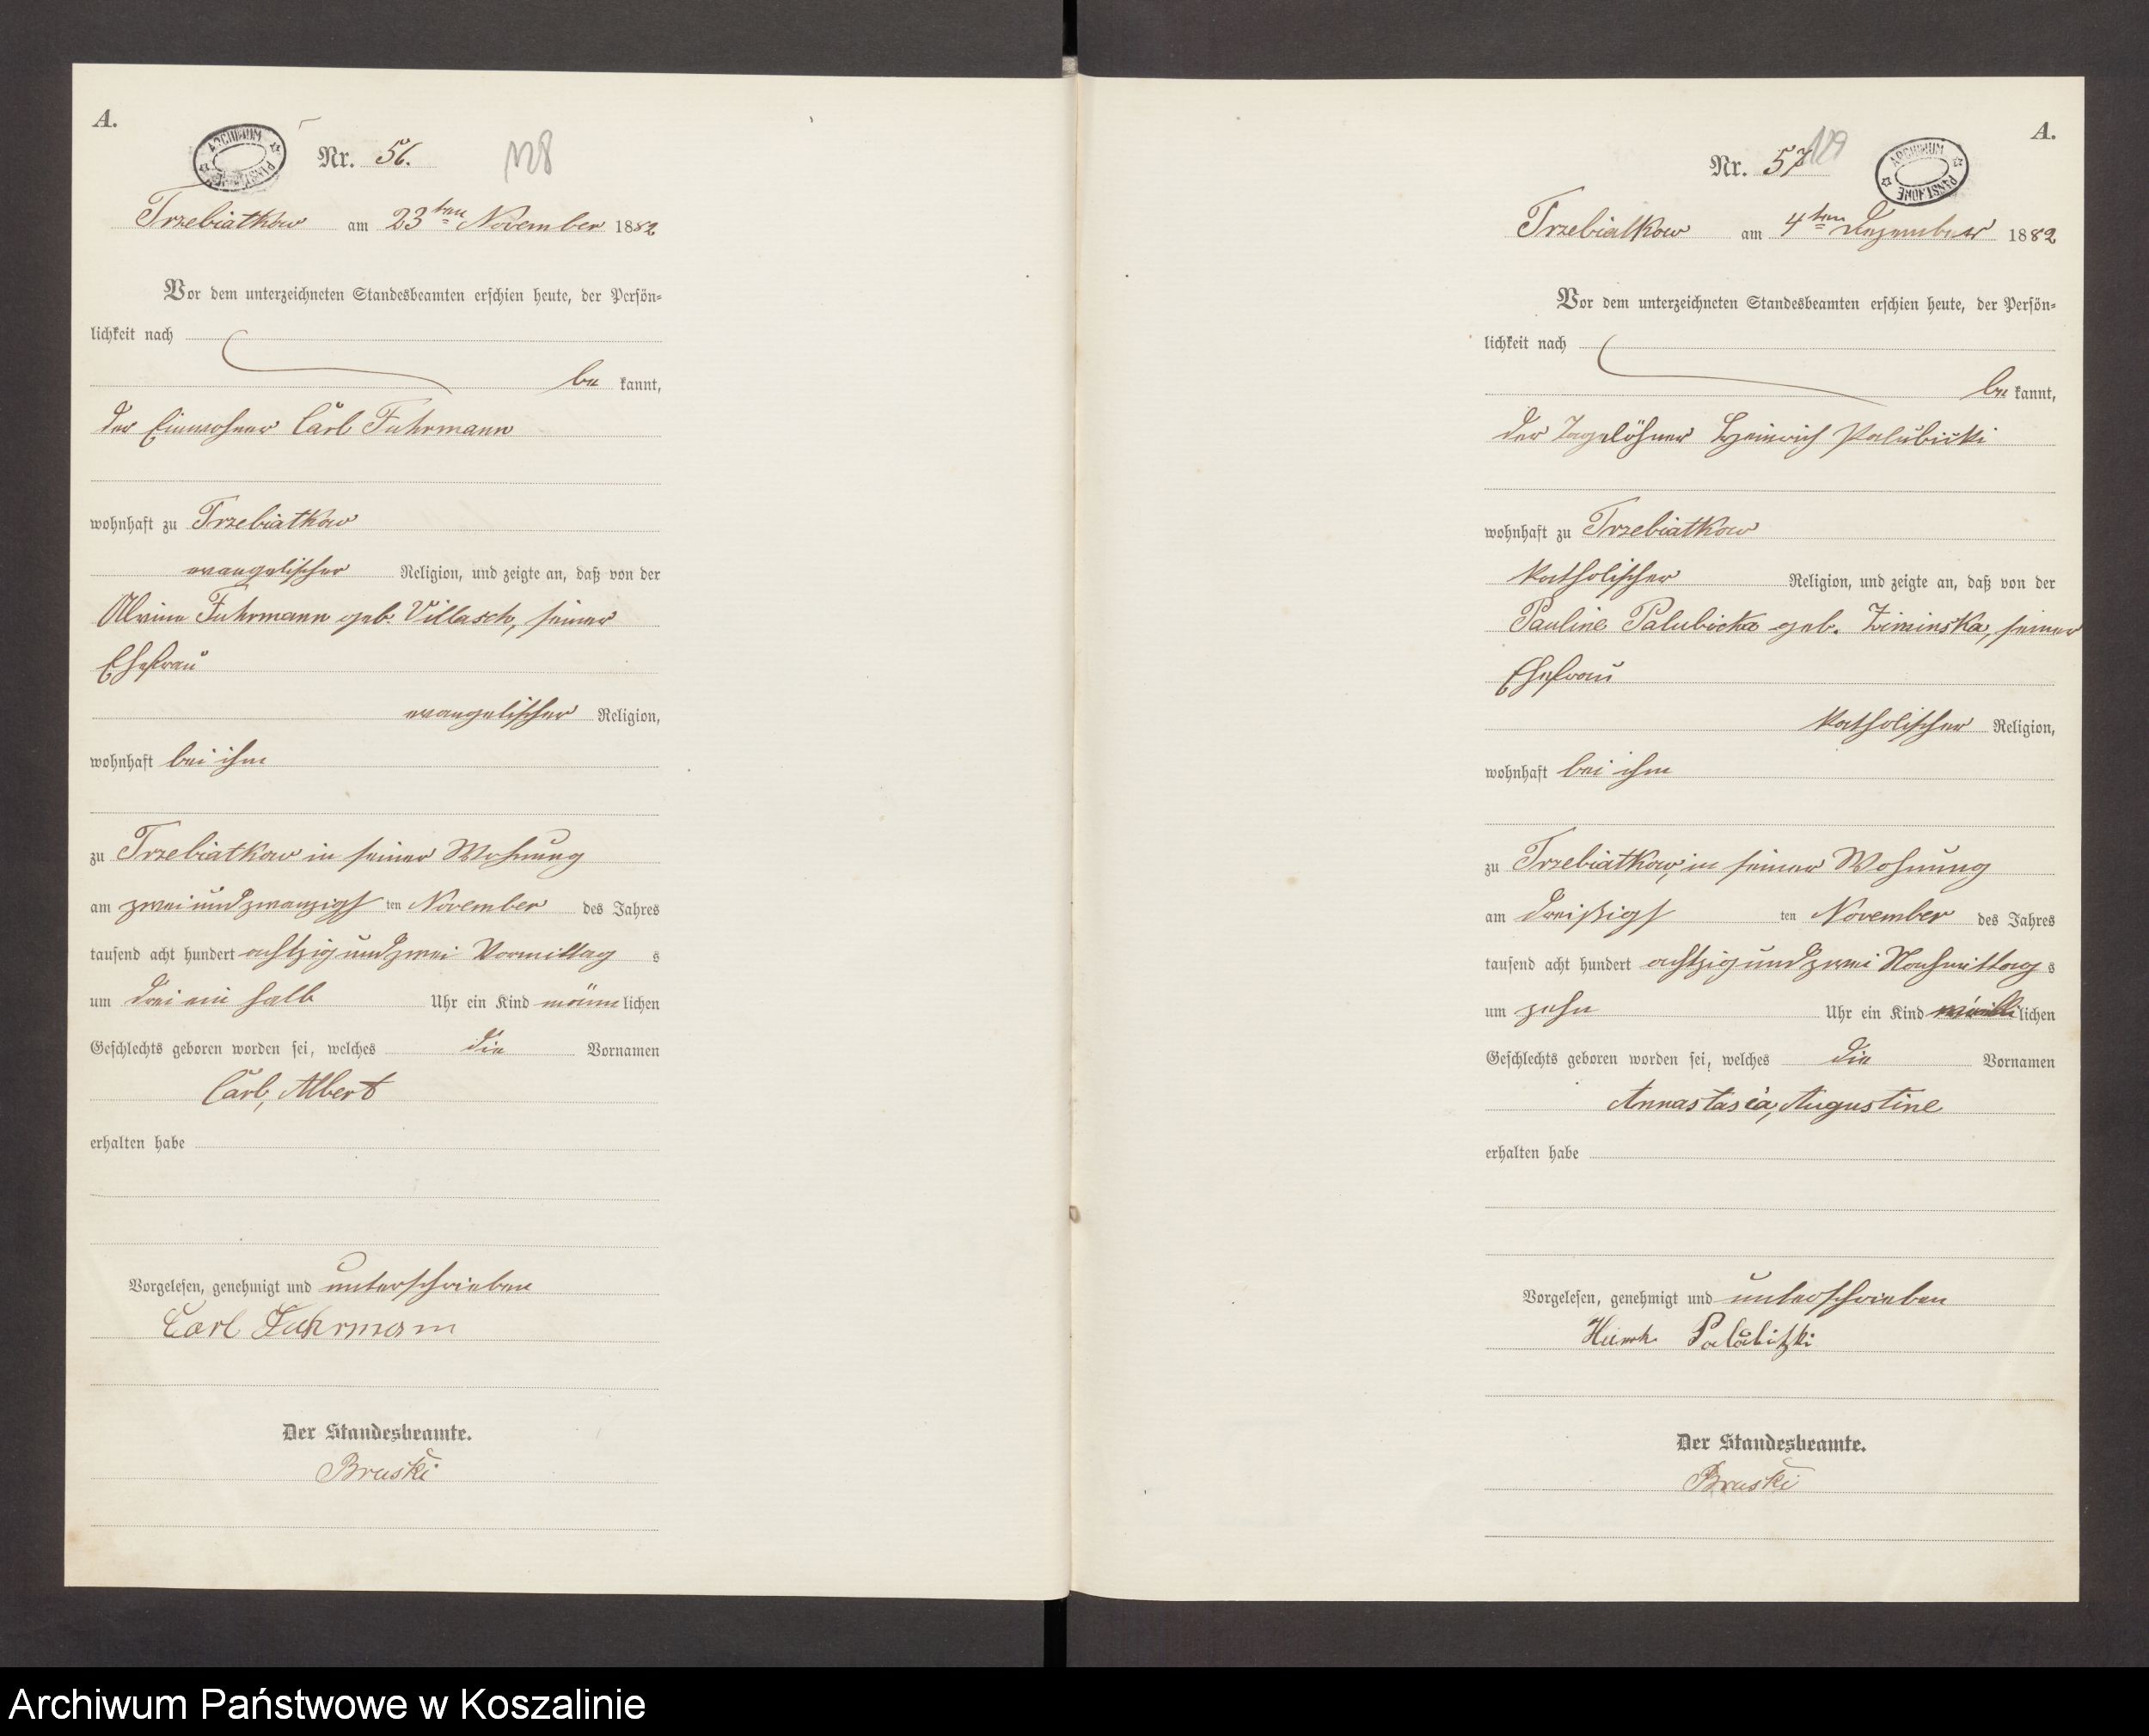 A.
ARCHIWUM PAŃSTWOWE
Nr. 56.
128
Trzebiatkow am 23ten November 1882
Vor dem unterzeichneten Standesbeamten erschien heute, der Persön-
lichkeit nach
be kannt,
der Einwohner Carl Fuhrmann
wohnhaft zu Trzebiatkow
evangelischer Religion, und zeigte an, daß von der
Alvine Fuhrmann geb. Villasch, seiner
Ehefrau
evangelischer Religion,
wohnhaft bei ihm
zu Trzebiatkow in seiner Wohnung
am zweiundzwanzigst ten November des Jahres
tausend acht hundert achtzig und zwei Vormittag s
um drei ein halb Uhr ein Kind männ lichen
Geschlechts geboren worden sei, welches die Vornamen
Carl, Albert
erhalten habe
Vorgelesen, genehmigt und unterschrieben
Carl Fuhrmann
Der Standesbeamte.
Bruski
A.
ARCHIWUM PAŃSTWOWE
Nr. 57
129
Trzebiatkow am 4ten Dezember 1882
Vor dem unterzeichneten Standesbeamten erschien heute, der Persön-
lichkeit nach
be kannt,
der Tagelöhner Heinrich Palubicki
wohnhaft zu Trzebiatkow
katholischer Religion, und zeigte an, daß von der
Pauline Palubicka geb. Ziminska, seiner
Ehefrau
katholischer Religion,
wohnhaft bei ihm
zu Trzebiatkow, in seiner Wohnung
am dreißigst ten November des Jahres
tausend acht hundert achtzig und zwei Nachmittag s
um zehn Uhr ein Kind lichen
Geschlechts geboren worden sei, welches die Vornamen
Annastasia, Augustine
erhalten habe
Vorgelesen, genehmigt und unterschrieben
Palubitzki
Der Standesbeamte.
Bruski
Archiwum Państwowe w Koszalinie